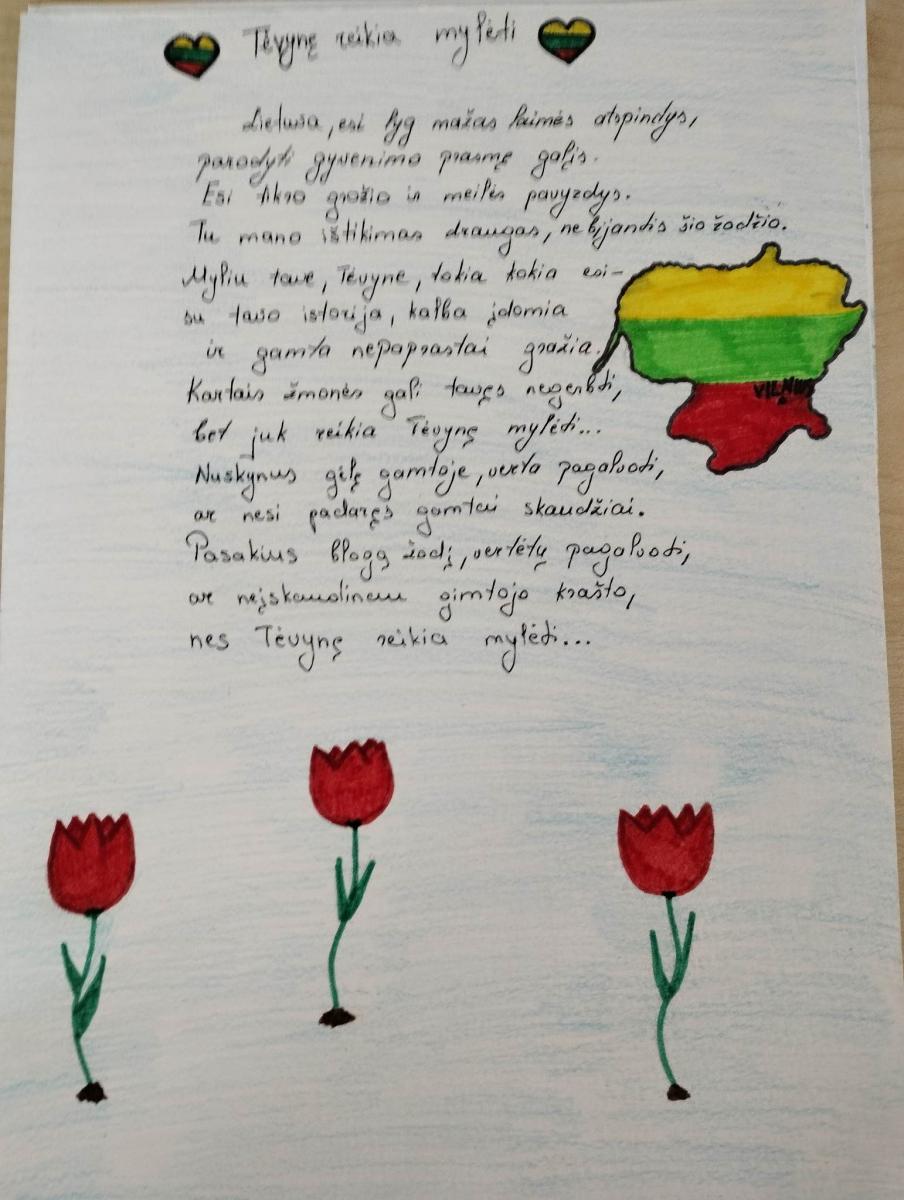 Tėvynę reikia mylėti
Lietuva, esi lyg mažas laimės atspindys,
parodyti gyvenimo prasmę galįs.
Esi tikro grožio ir meilės pavyzdys.
Tu mano ištikimas draugas, nebijandis šio žodžio.
Myliu tave, Tėvyne, tokia kokia esi-
su tavo istorija, kalba įdomia
ir gamta nepaprastai gražia.
Kartais žmonės gali tavęs negerbti,
bet juk reikia Tėvynę mylėti...
Nuskynus gėlę gamtoje, verta pagalvoti,
ar nesi padaręs gamtai skaudžiai.
Pasakius blogą žodį, vertėtų pagalvoti,
ar neįskaudinau gimtojo krašto,
nes Tėvynę reikia mylėti...
VILNIUS